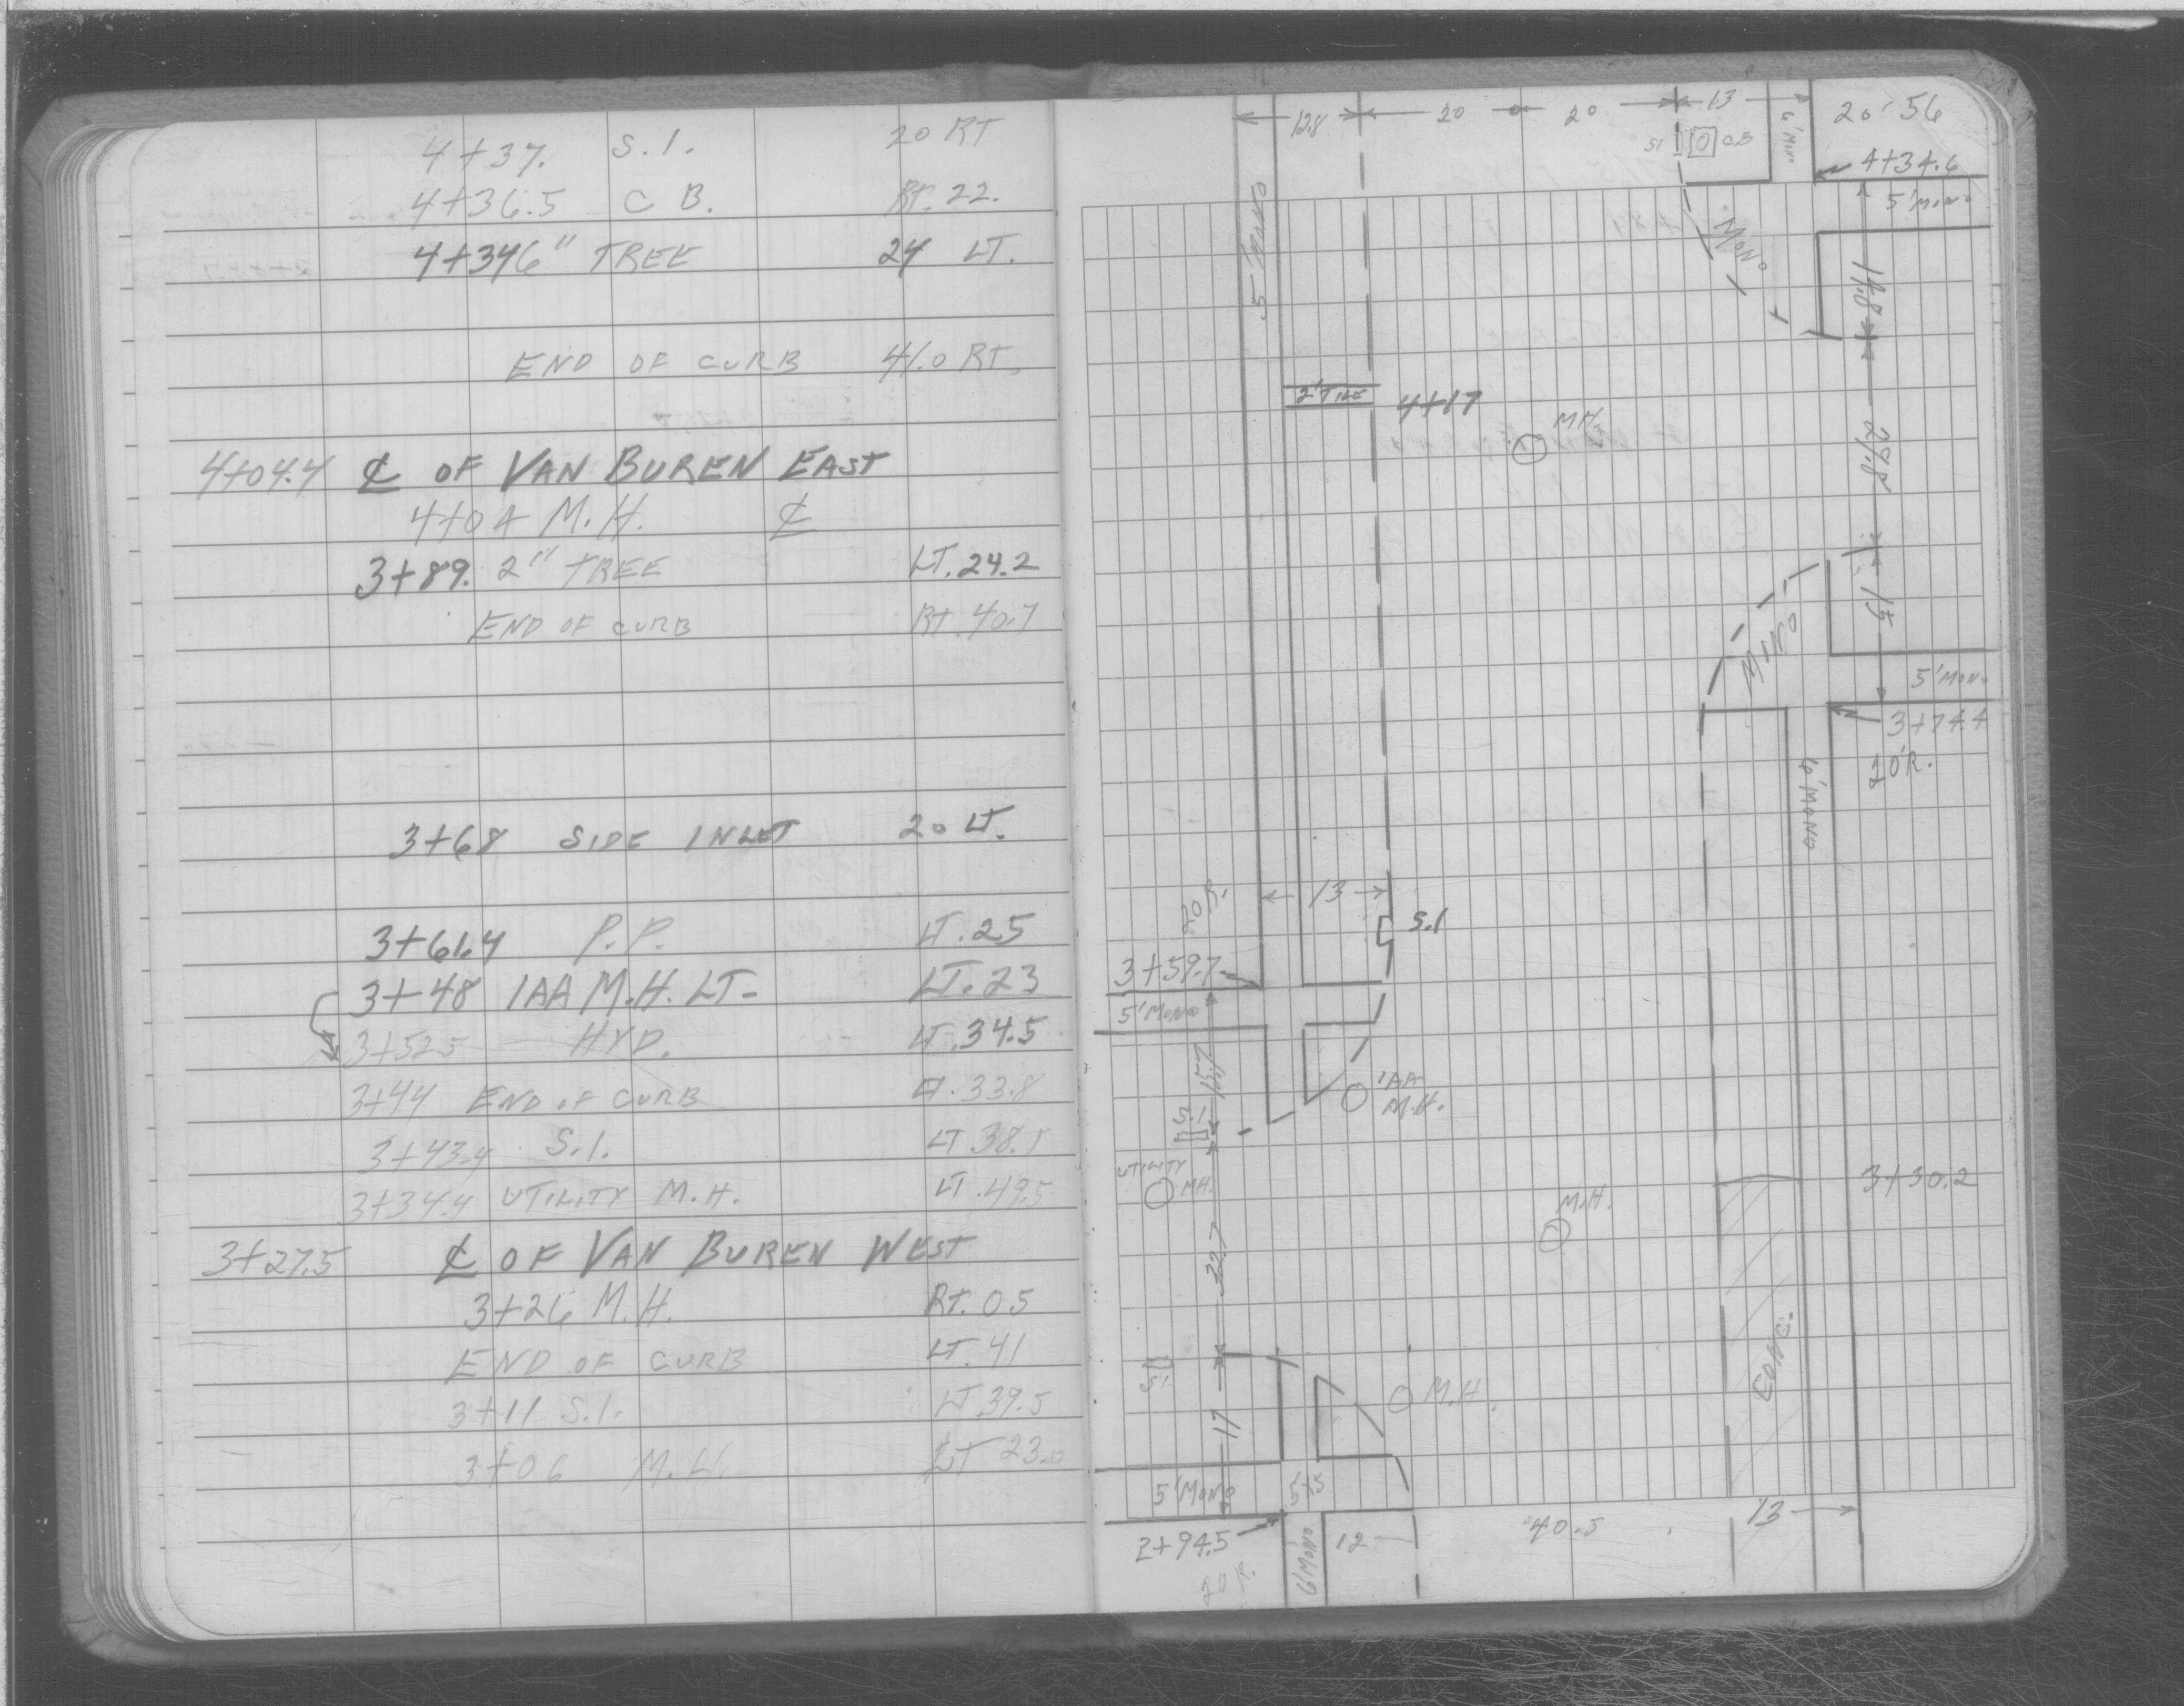 4+37. S.I. 20 RT
4+36.5 C B. Rt. 22.
4+34 6" TREE 24 LT.
END OF CURB 41.0 RT.
4+04.4 ℄ OF VAN BUREN EAST
4+04 M.H. ℄
3+89. 2" TREE LT. 24.2
END OF CURB Rt. 40.7
3+68 SIDE INLET 20 LT.
3+61.4 P.P. LT. 25
3+48 IAA M.H. LT- LT. 23
3+52.5 HYD. LT. 34.5
3+44 END OF CURB LT. 33.8
3+43.4 S.I. LT 38.5
3+34.4 UTILITY M.H. LT. 49.5
3+27.5 ℄ OF VAN BUREN WEST
3+26 M.H. Rt. 0.5
END OF CURB LT. 41
3+11 S.I. LT 39.5
3+06 M.H. LT 23.0
12.8 20 20 13
20' 56
SI CB
6' MONO
4+34.6
5' MONO
5' MONO
MONO
14.8
2' TILE 4+17
M.H.
29.8
15
MONO
5' MONO
3+74.4
20' R.
6' MONO
13
20 R.
S.I
3+59.7
5' MONO
15.7
IAA
M.H.
S.I.
UTILITY
MH.
3+30.2
M.H.
32.7
CONC.
SI
M.H.
17
5' MONO 5x5
2+94.5
20 R.
6' MONO
12
40.5
13